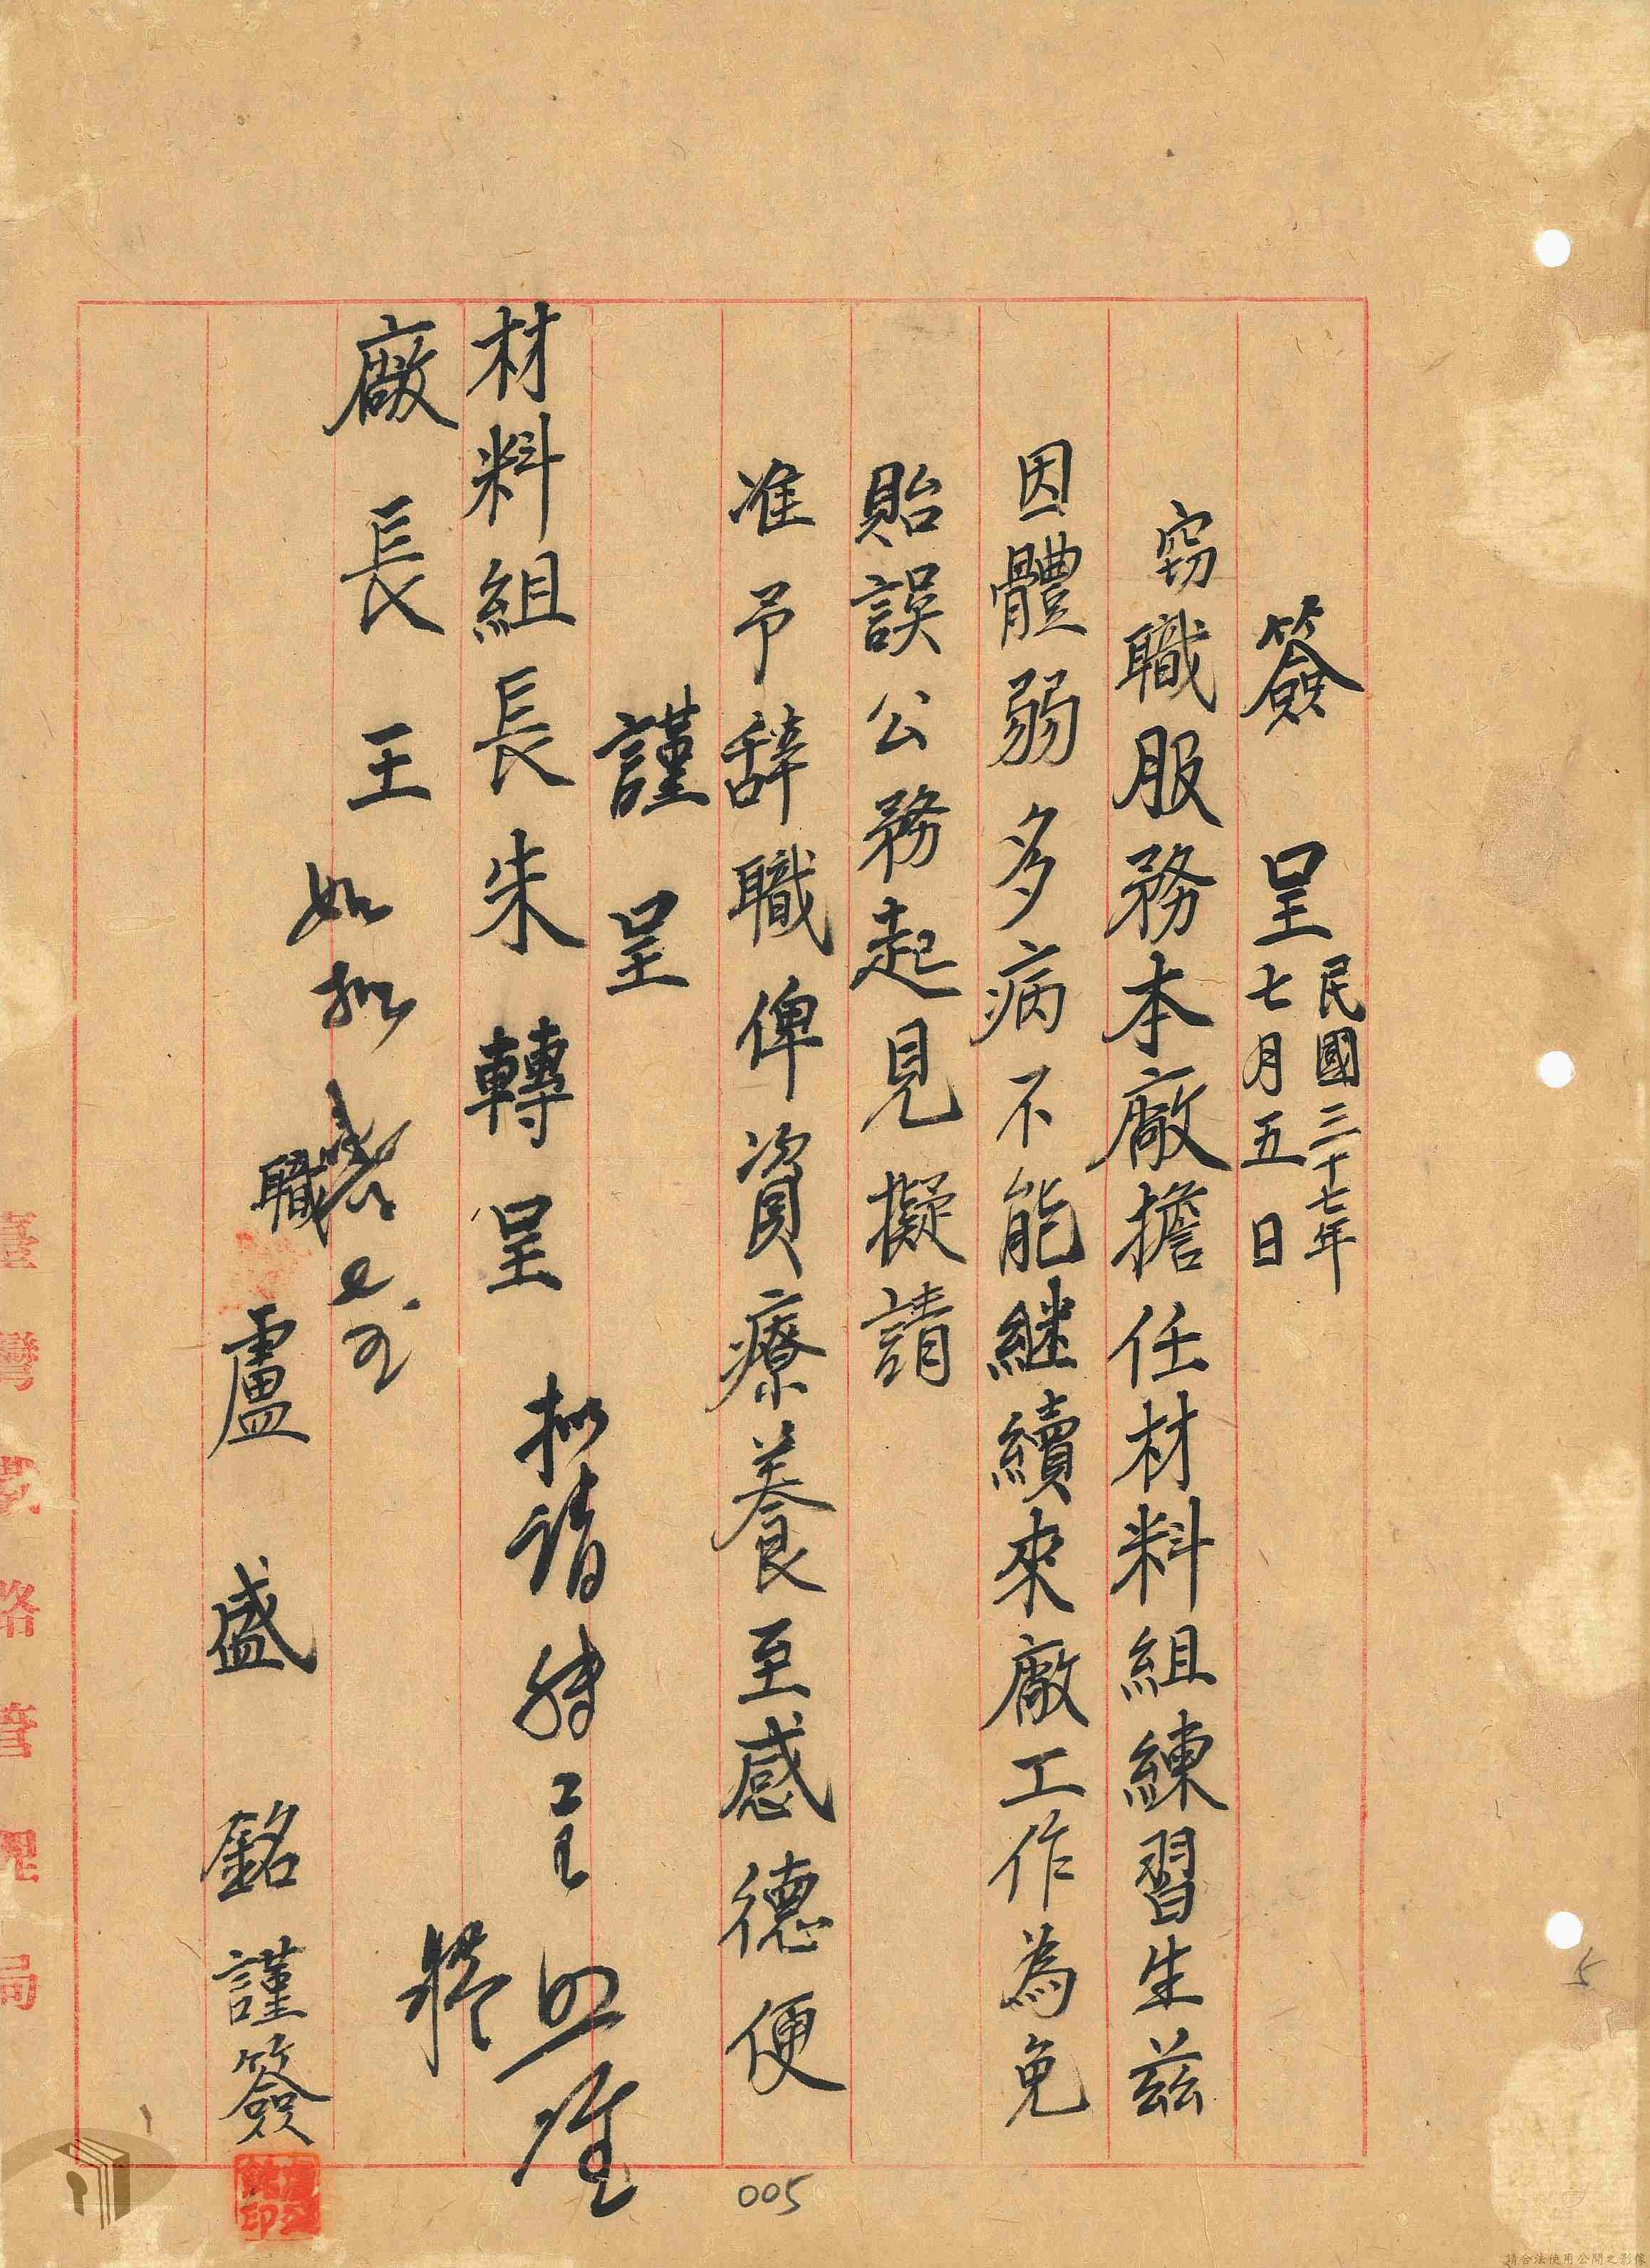 簽　呈 民國三十七年
七月五日
窃職服務本廠擔任材料組練習生茲
因體弱多病不能継續來廠工作為免
貽誤公務起見擬請
准予辞職俾資療養至感德便
謹　呈
材料組長朱 轉呈
廠長王
職 盧盛銘謹簽
拟請轉呈 照准
如拟
臺灣鐵路管理局
005
5
請合法使用公開之影像